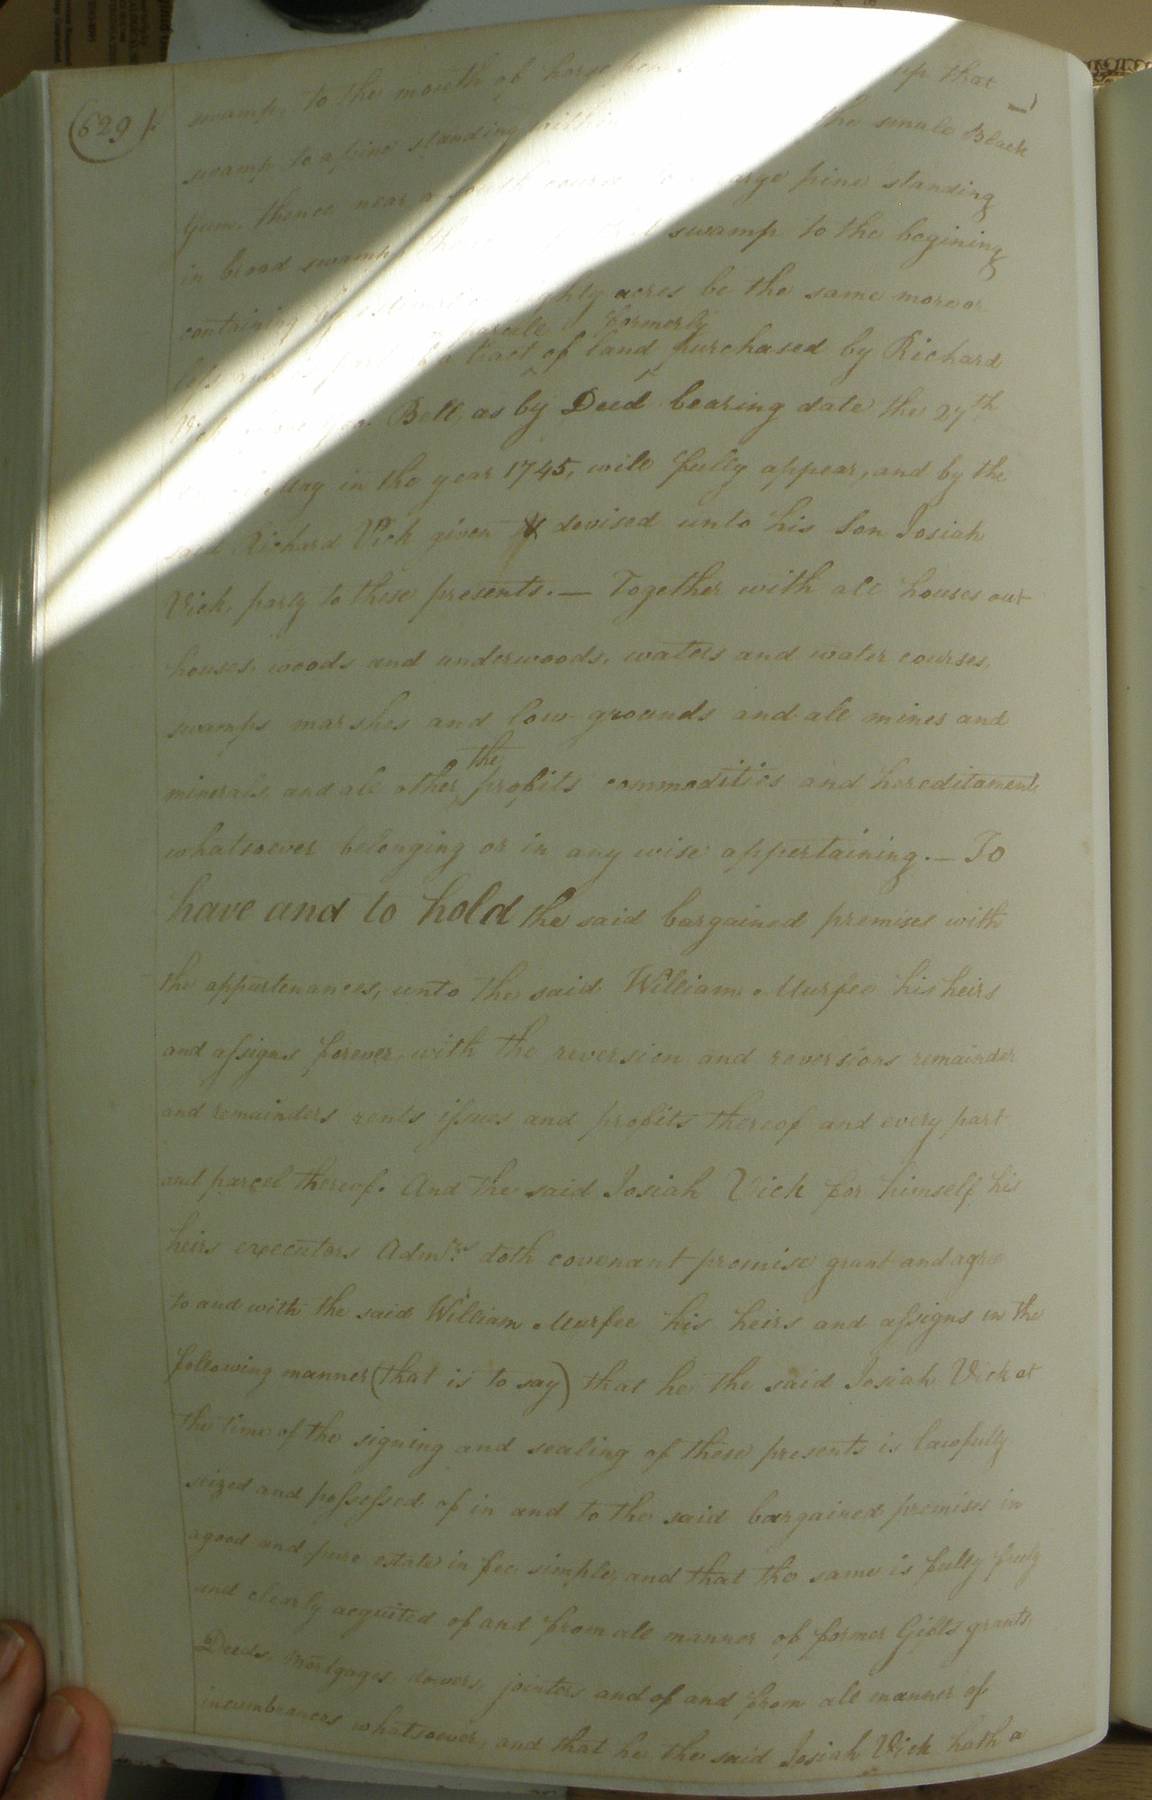 (629).
swamp, to the mouth of horse pen up that
swamp to a pine standing within the small Black
Gum, thence near a south course to a large pine standing
in broad swamp, thence swamp to the begining
containing by estimation eighty acres be the same more or
less and is part of a tract parcele of land formerly purchased by Richard
Bell, as by Deed bearing date the 27th
May in the year 1745, will fully appear, and by the
said Richard Vick given & devised unto his Son Josiah
Vick, party to these presents. — Together with all houses out
houses, woods and underwoods, waters and water courses,
swamps marshes and low-grounds and all mines and
minerals, and all other the profits commodities and hereditaments
whatsoever belonging or in any wise appertaining. — To
have and to hold the said bargained premises with
the appurtenances, unto the said William Murfee his heirs
and assigns forever, with the reversion and reversions remainder
and remainders rents issues and profits thereof and every part
and parcel thereof. And the said Josiah Vick for himself his
heirs executors Admrs. doth covenant promise grant and agree
to and with the said William Murfee his heirs and assigns in the
following manner (that is to say) that he the said Josiah Vick at
the time of the signing and sealing of these presents is lawfully
seized and possessed of in and to the said bargained premises in
a good and pure estate in fee simple, and that the same is fully freely
and clearly acquited of and from all manner of former Gifts grants,
Deeds, Mortgages, dowers, jointers and of and from all manner of
incumbrances whatsoever, and that he the said Josiah Vick hath a